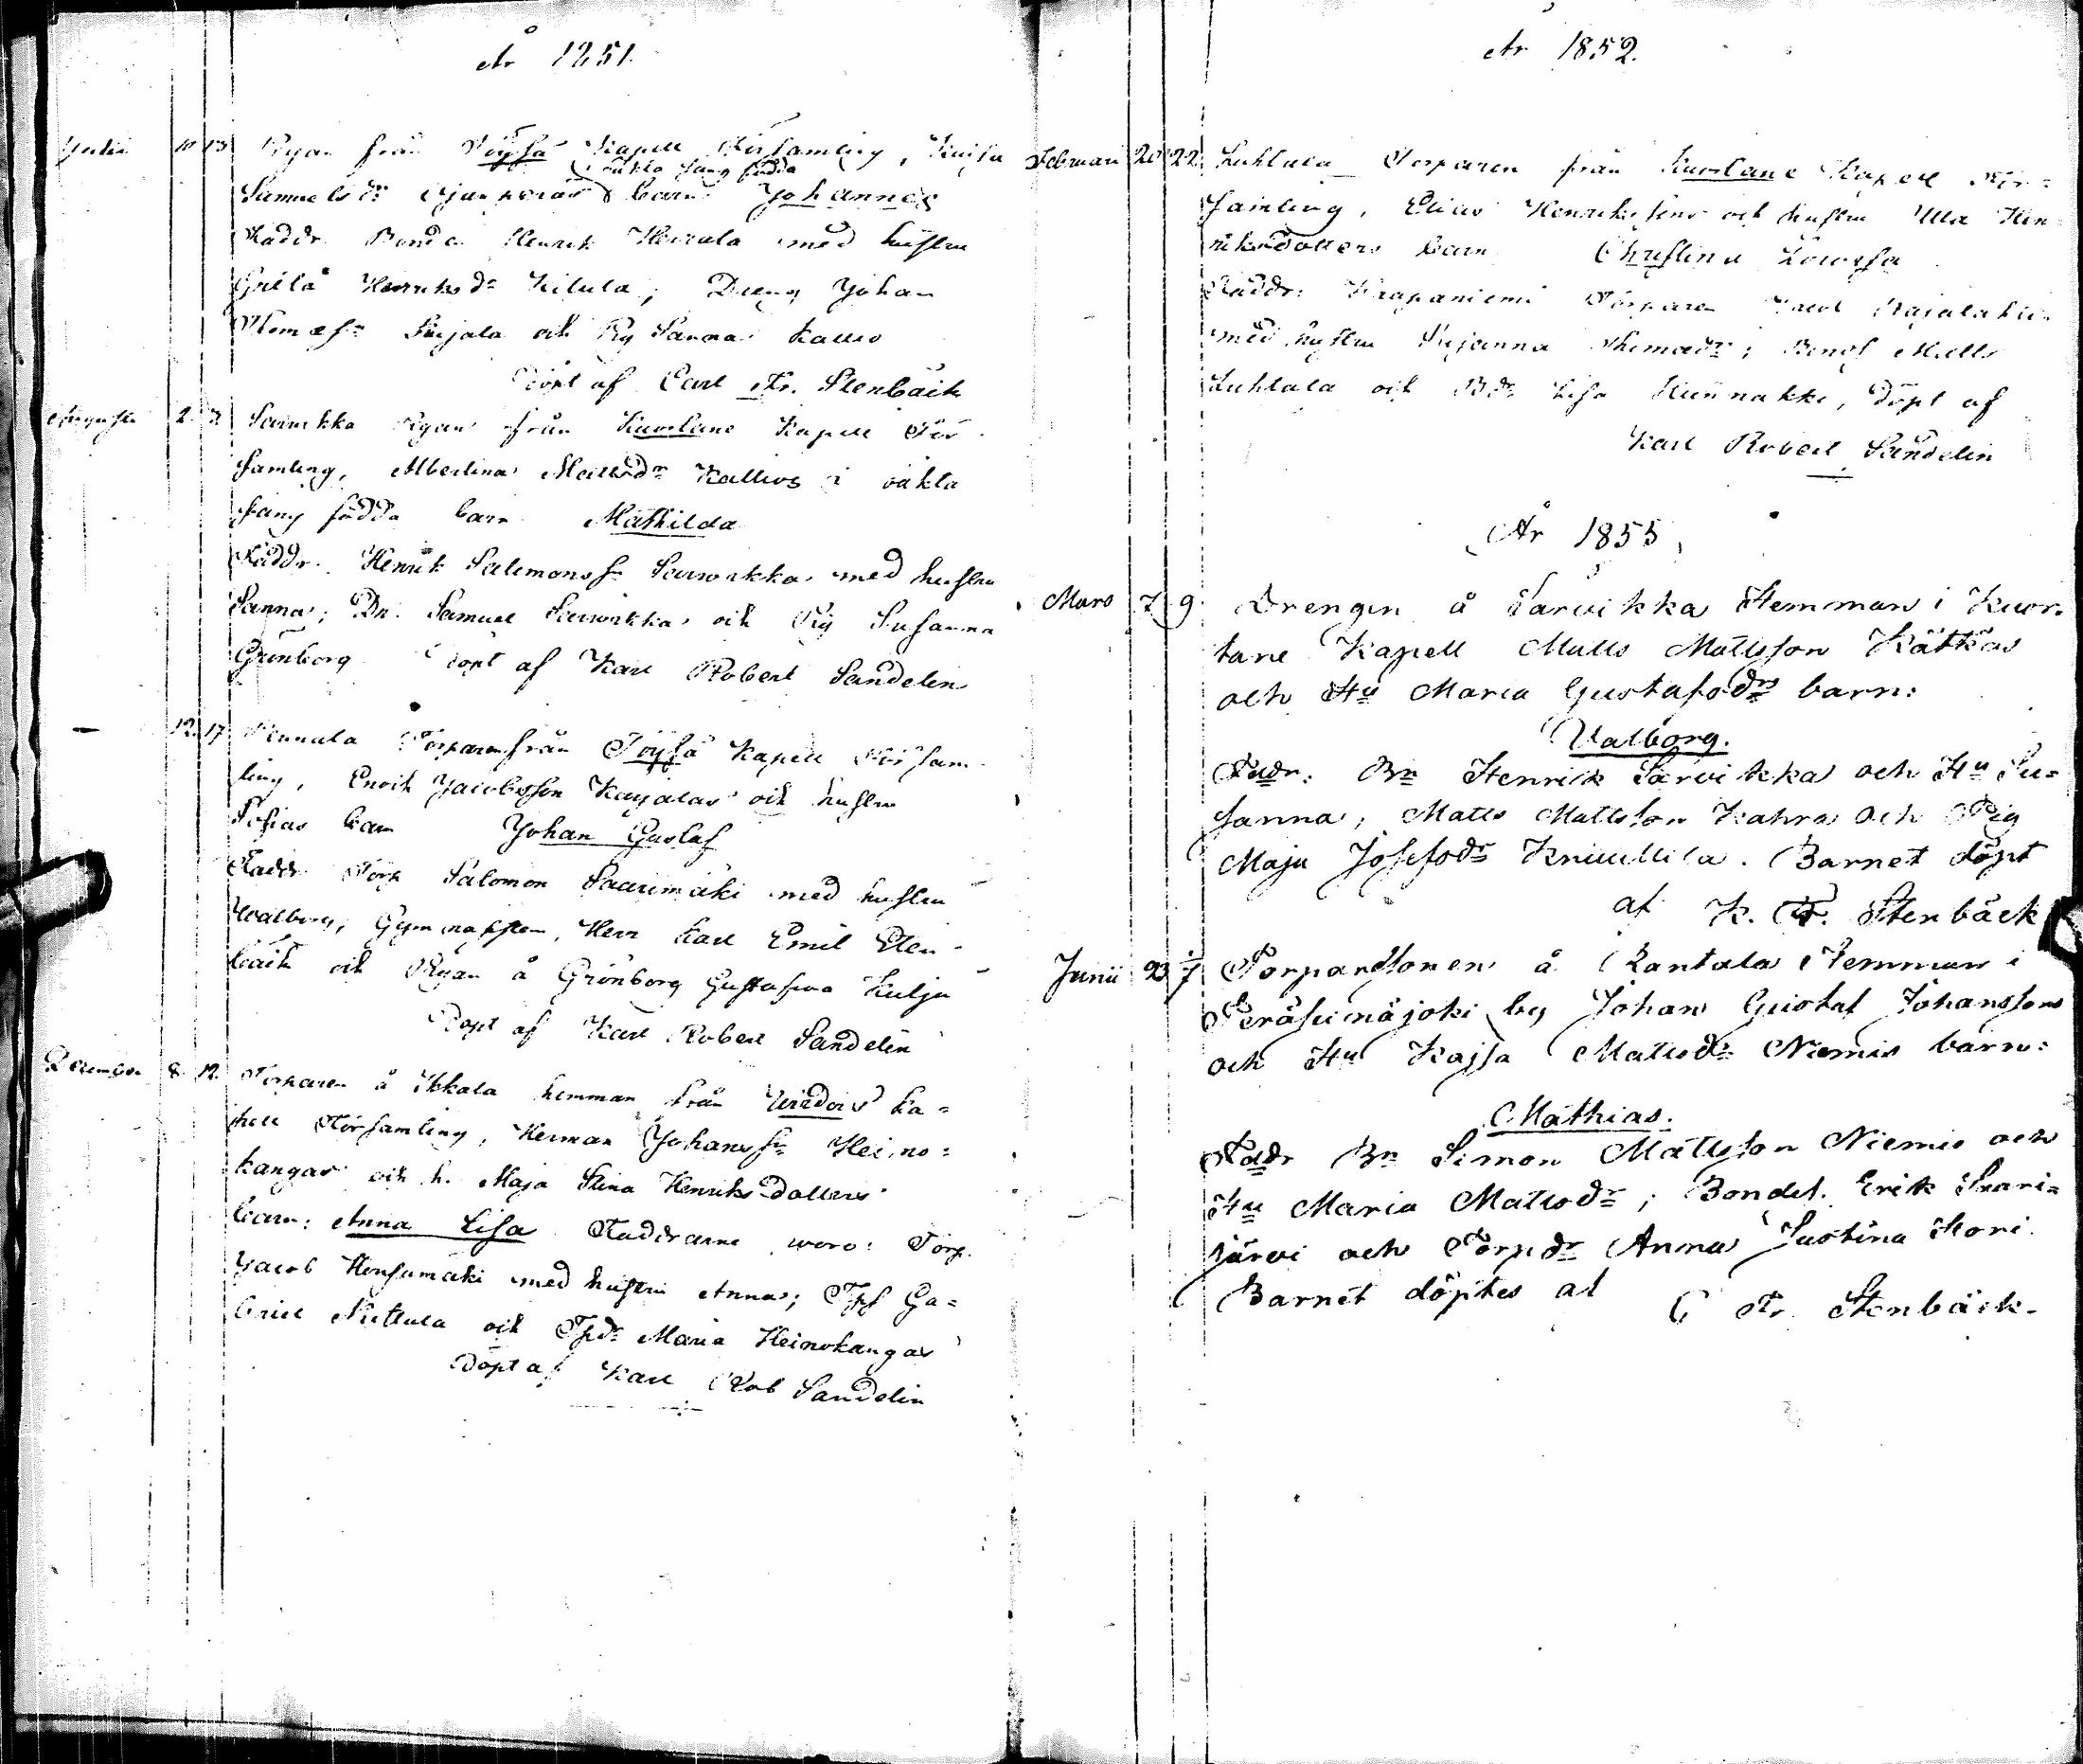 År 1851.
Julii 10 13 Pigan från Töysä Kapell Församling, Kaisa
oäkta säng födda
Samuelsdr barn Johannes
Faddr. Bonden Henrik Herrala med hustru
Greta Henriksdr Kilula; Dreng Johan
Thomass. Kujala och Pig Sanna Kallio
Döpt af Carl Fr. Stenbäck
Augusti 2 3 Sarvikka Pigan från Kuortane Kapell För-
samling, Albertina Mattsdr Kallios i oäkta
säng födda barn Mathilda
Faddr. Henrik Salomonss. Sarwikka med hustru
Sanna; Dr. Samuel Sarwikka och Pig Susanna
Grönborg Döpt af Karl Robert Sandelin
— 12 17 Torparen från Töysä Kapell Försam-
ling, Erik Jacobsson Karjalas och hustru
Sofias barn Johan Gustaf
Faddr Torp Salomon Saarimäki med hustru
Walborg, Gymnasisten, Herr Karl Emil Sten-
bäck och Pigan å Grönborg Gustafwa Kulju
Döpt af Karl Robert Sandelin
December 8 12 Torparen å Ikkala hemman från Wirdois Ka=
pell Församling, Herman Johanss. Heino=
kangas och h. Maja Stina Henriksdotters
barn: Anna Lisa Faddrarne woro: Torp.
Jacob Hensumäki med hustru Anna; Tps Ga=
briel Nuttula och Tpdr Maria Heinokangas
Döpt af Karl Rob Sandelin
År 1852.
Februari 20 22 Luhtala Torparen från Kuortane Kapell För=
samling, Elias Henrikssons och hustru Ulla Hen
riksdotters barn Christina Lowisa
Faddr: Kaapaniemi Torparen Rajalahti
med hustru Susanna Thomadr; Bond Matts
Luhtala och Bdr Lisa Hünnakko, Döpt af
Karl Robert Sandelin
År 1855
Mars 7 9 Drengen å Sarvikka Hemman i Kuor-
tane Kapell Matts Mattsson Kätkäs
och Hu Maria Gustafsdrs barn:
Valborg.
Fadr: Bn Henrik Sarvikka och Hu Su=
sanna, Matts Mattsson Kahra och Pig
Maja Josefsdr Knuuttila. Barnet döpt
af K. F. Stenbäck
Junii 23 1/7 Torparesonen å Rantala Hemman i
Peräseinäjoki by Johan Gustaf Johanssons
och Hu Kajsa Mattsdr Niemis barn:
Mathias.
Fadr Bn Simon Mattsson Niemis och
Hu Maria Mattsdr; Bondes. Erik Saari=
järvi och Torpdr Anna Justina Hori.
Barnet döptes af C Fr. Stenbäck.